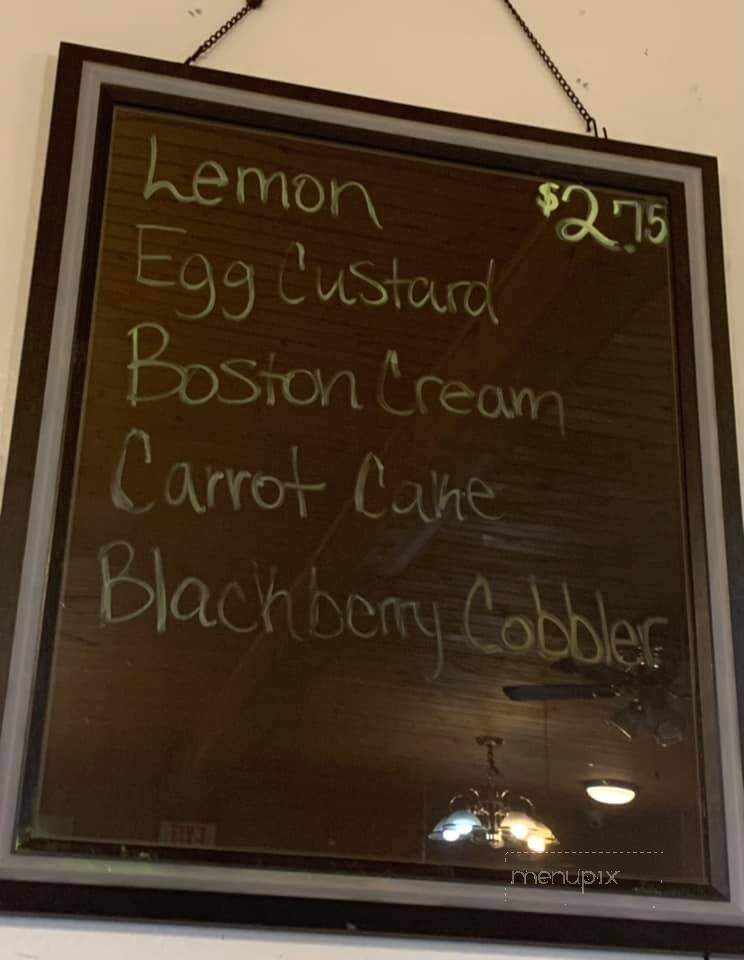 Lemon $2.75
Egg Custard
Boston Cream
Carrot Cake
Blackberry Cobbler
menupix